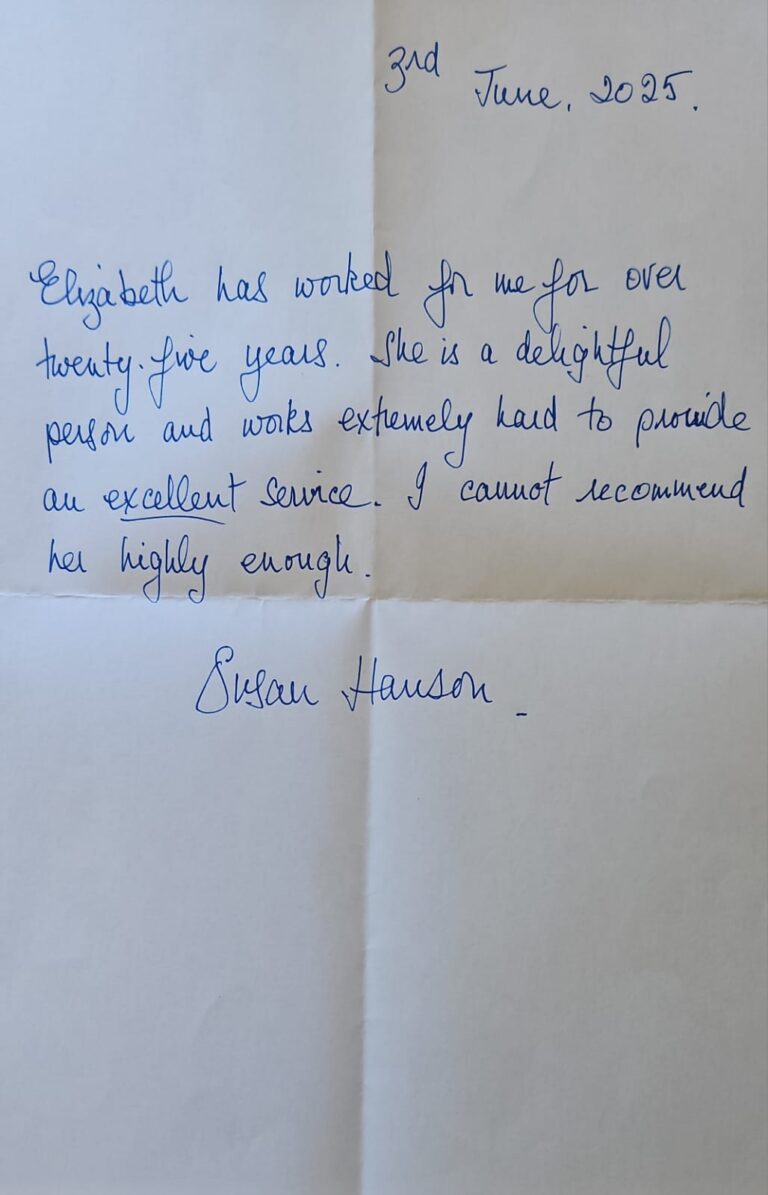 3rd June, 2025.
Elizabeth has worked for me for over
twenty-five years. She is a delightful
person and works extremely hard to provide
an excellent service. I cannot recommend
her highly enough.
Susan Hanson